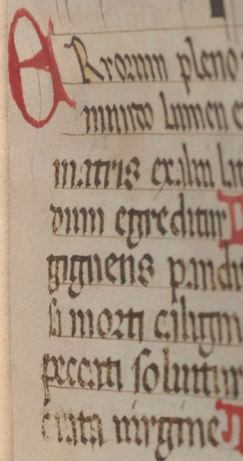 ERrorum pleno
mundo lumen e
matris exalui
dum egreditur
gignens pandi
morti caligin
peccati soluitur
uirgine